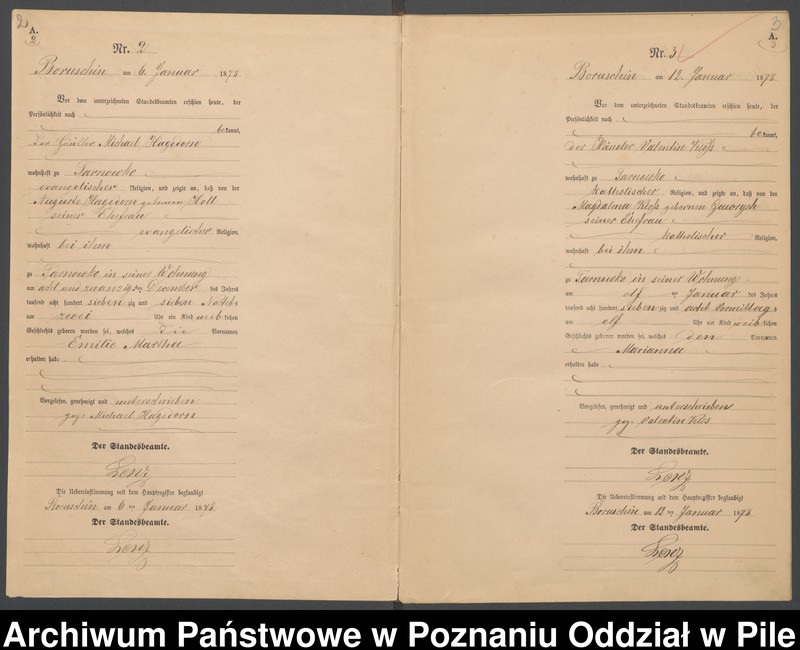 2
A.
2
Nr. 2
Boruschin am 6. Januar 1878.
Vor dem unterzeichneten Standesbeamten erschien heute, der
Persönlichkeit nach
bekannt,
der Häusler Michael Hagedorn
wohnhaft zu Tarnowko
evangelischer Religion, und zeigte an, daß von der
Auguste Hagedorn geborenen
seiner Ehefrau
evangelischer Religion,
wohnhaft bei ihm
zu Tarnowko in seiner Wohnung
am acht und zwanzigsten December des Jahres
tausend acht hundert siebenzig und sieben Nachts
um zwei Uhr ein Kind weiblichen
Geschlechts geboren worden sei, welches die Vornamen
Emilie Martha
erhalten habe
Vorgelesen, genehmigt und unterschrieben
gez. Michael Hagedorn
Der Standesbeamte.
Lenz
Die Uebereinstimmung mit dem Hauptregister beglaubigt
Boruschin am 6ten Januar 1878.
Der Standesbeamte.
Lenz
3
A.
3
Nr. 3
Boruschin am 12. Januar 1878.
Vor dem unterzeichneten Standesbeamten erschien heute, der
Persönlichkeit nach
bekannt,
der Häusler Valentin Kloß
wohnhaft zu Tarnowko
katholischer Religion, und zeigte an, daß von der
Magdalena Kloß geborenen
seiner Ehefrau
katholischer Religion,
wohnhaft bei ihm
zu Tarnowko in seiner Wohnung
am elften Januar des Jahres
tausend acht hundert siebenzig und acht Vormittags
um elf Uhr ein Kind weiblichen
Geschlechts geboren worden sei, welches den Vornamen
Marianna
erhalten habe
Vorgelesen, genehmigt und unterschrieben
gez. Valentin Klos
Der Standesbeamte.
Lenz
Die Uebereinstimmung mit dem Hauptregister beglaubigt
Boruschin am 12ten Januar 1878.
Der Standesbeamte.
Lenz
Archiwum Państwowe w Poznaniu Oddział w Pile